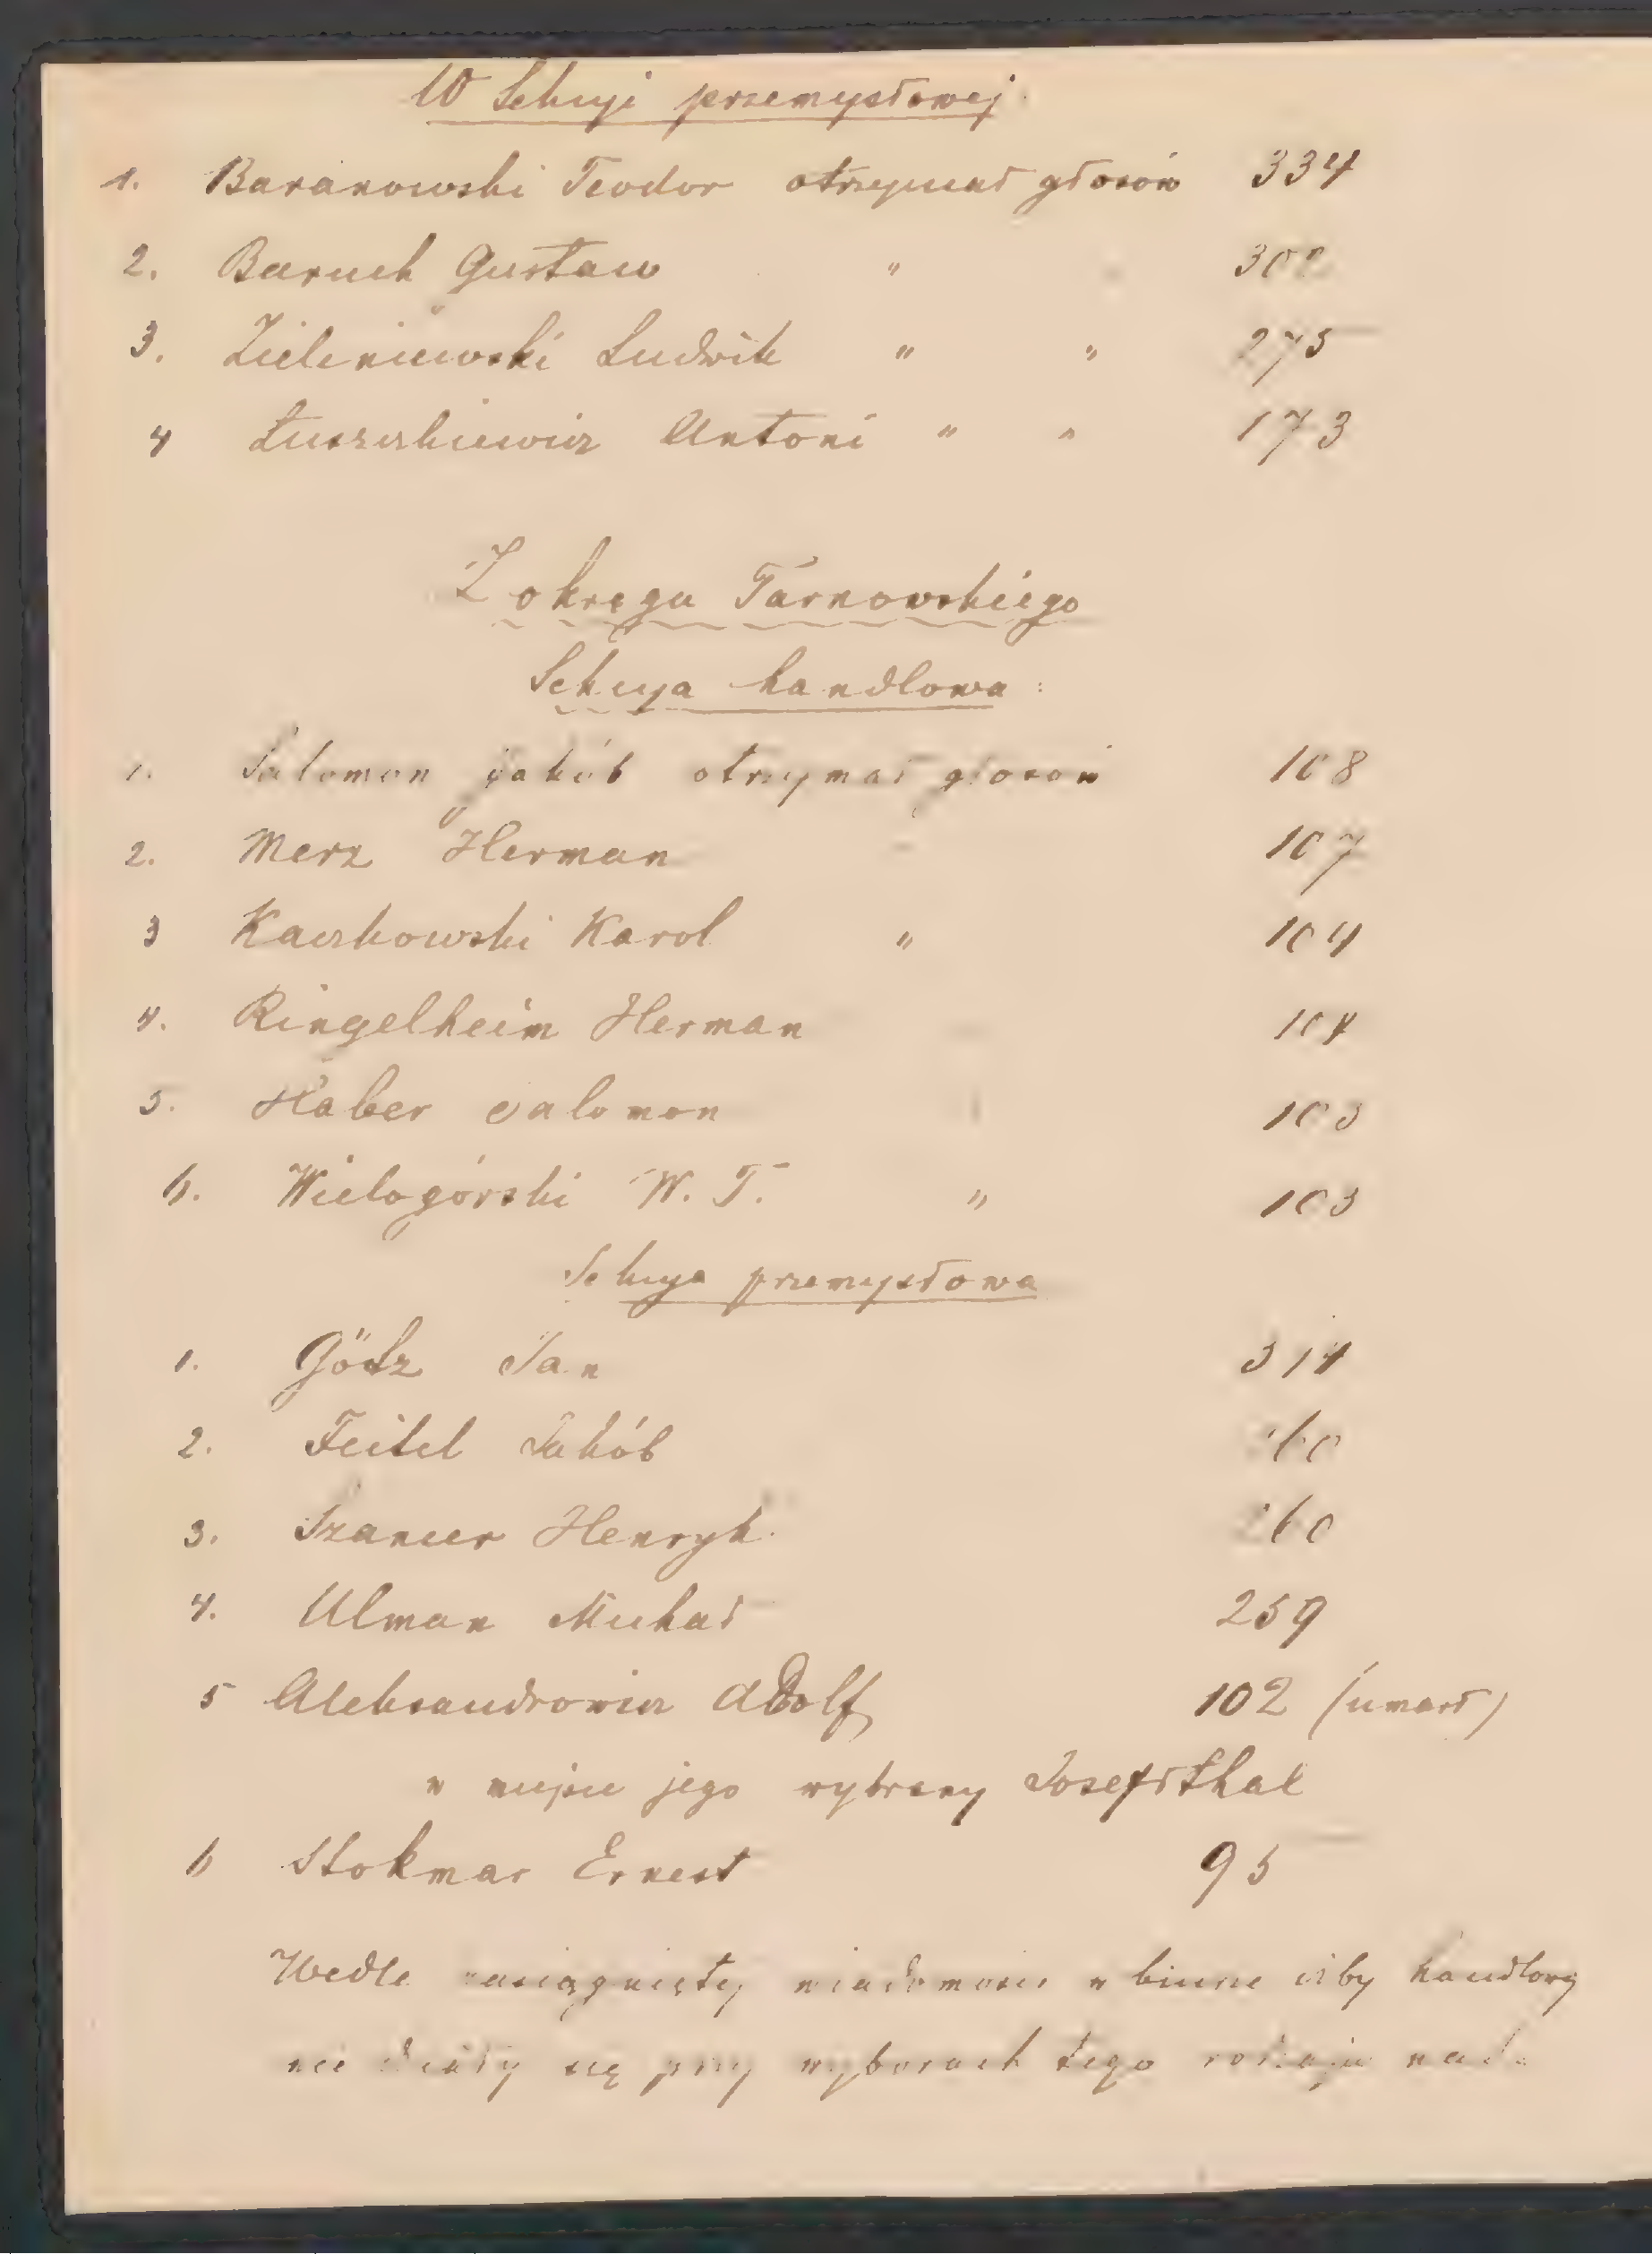 W Sekcyi przemysłowej.
1. Baranowski Teodor otrzymał głosów 334
2. Baruch Gustaw " 302
3. Zieleniewski Ludwik " " 275
4 Łuszczkiewicz Antoni " " 173
Z okręgu Tarnowskiego
Sekcya handlowa:
1. Salomon Jakób otrzymał głosów 108
2. Merz Herman 107
3 Kaczkowski Karol " 104
4. Ringelheim Herman 104
5. Haber Salomon 103
6. Wielogórski W. T. " 103
Sekcya przemysłowa
1. Götz Jan 314
2. Feitel Jakób 260
3. Szancer Henryk. 260
4. Ulman Michał 259
5 Aleksandrowicz Adolf 102 (umarł)
w miejsce jego wybrany Josefsthal
6 Stokmar Ernest 95
Wedle zasiągniętej wiadomości w biurze izby handlowej
nie działy się przy wyborach tego rodzaju